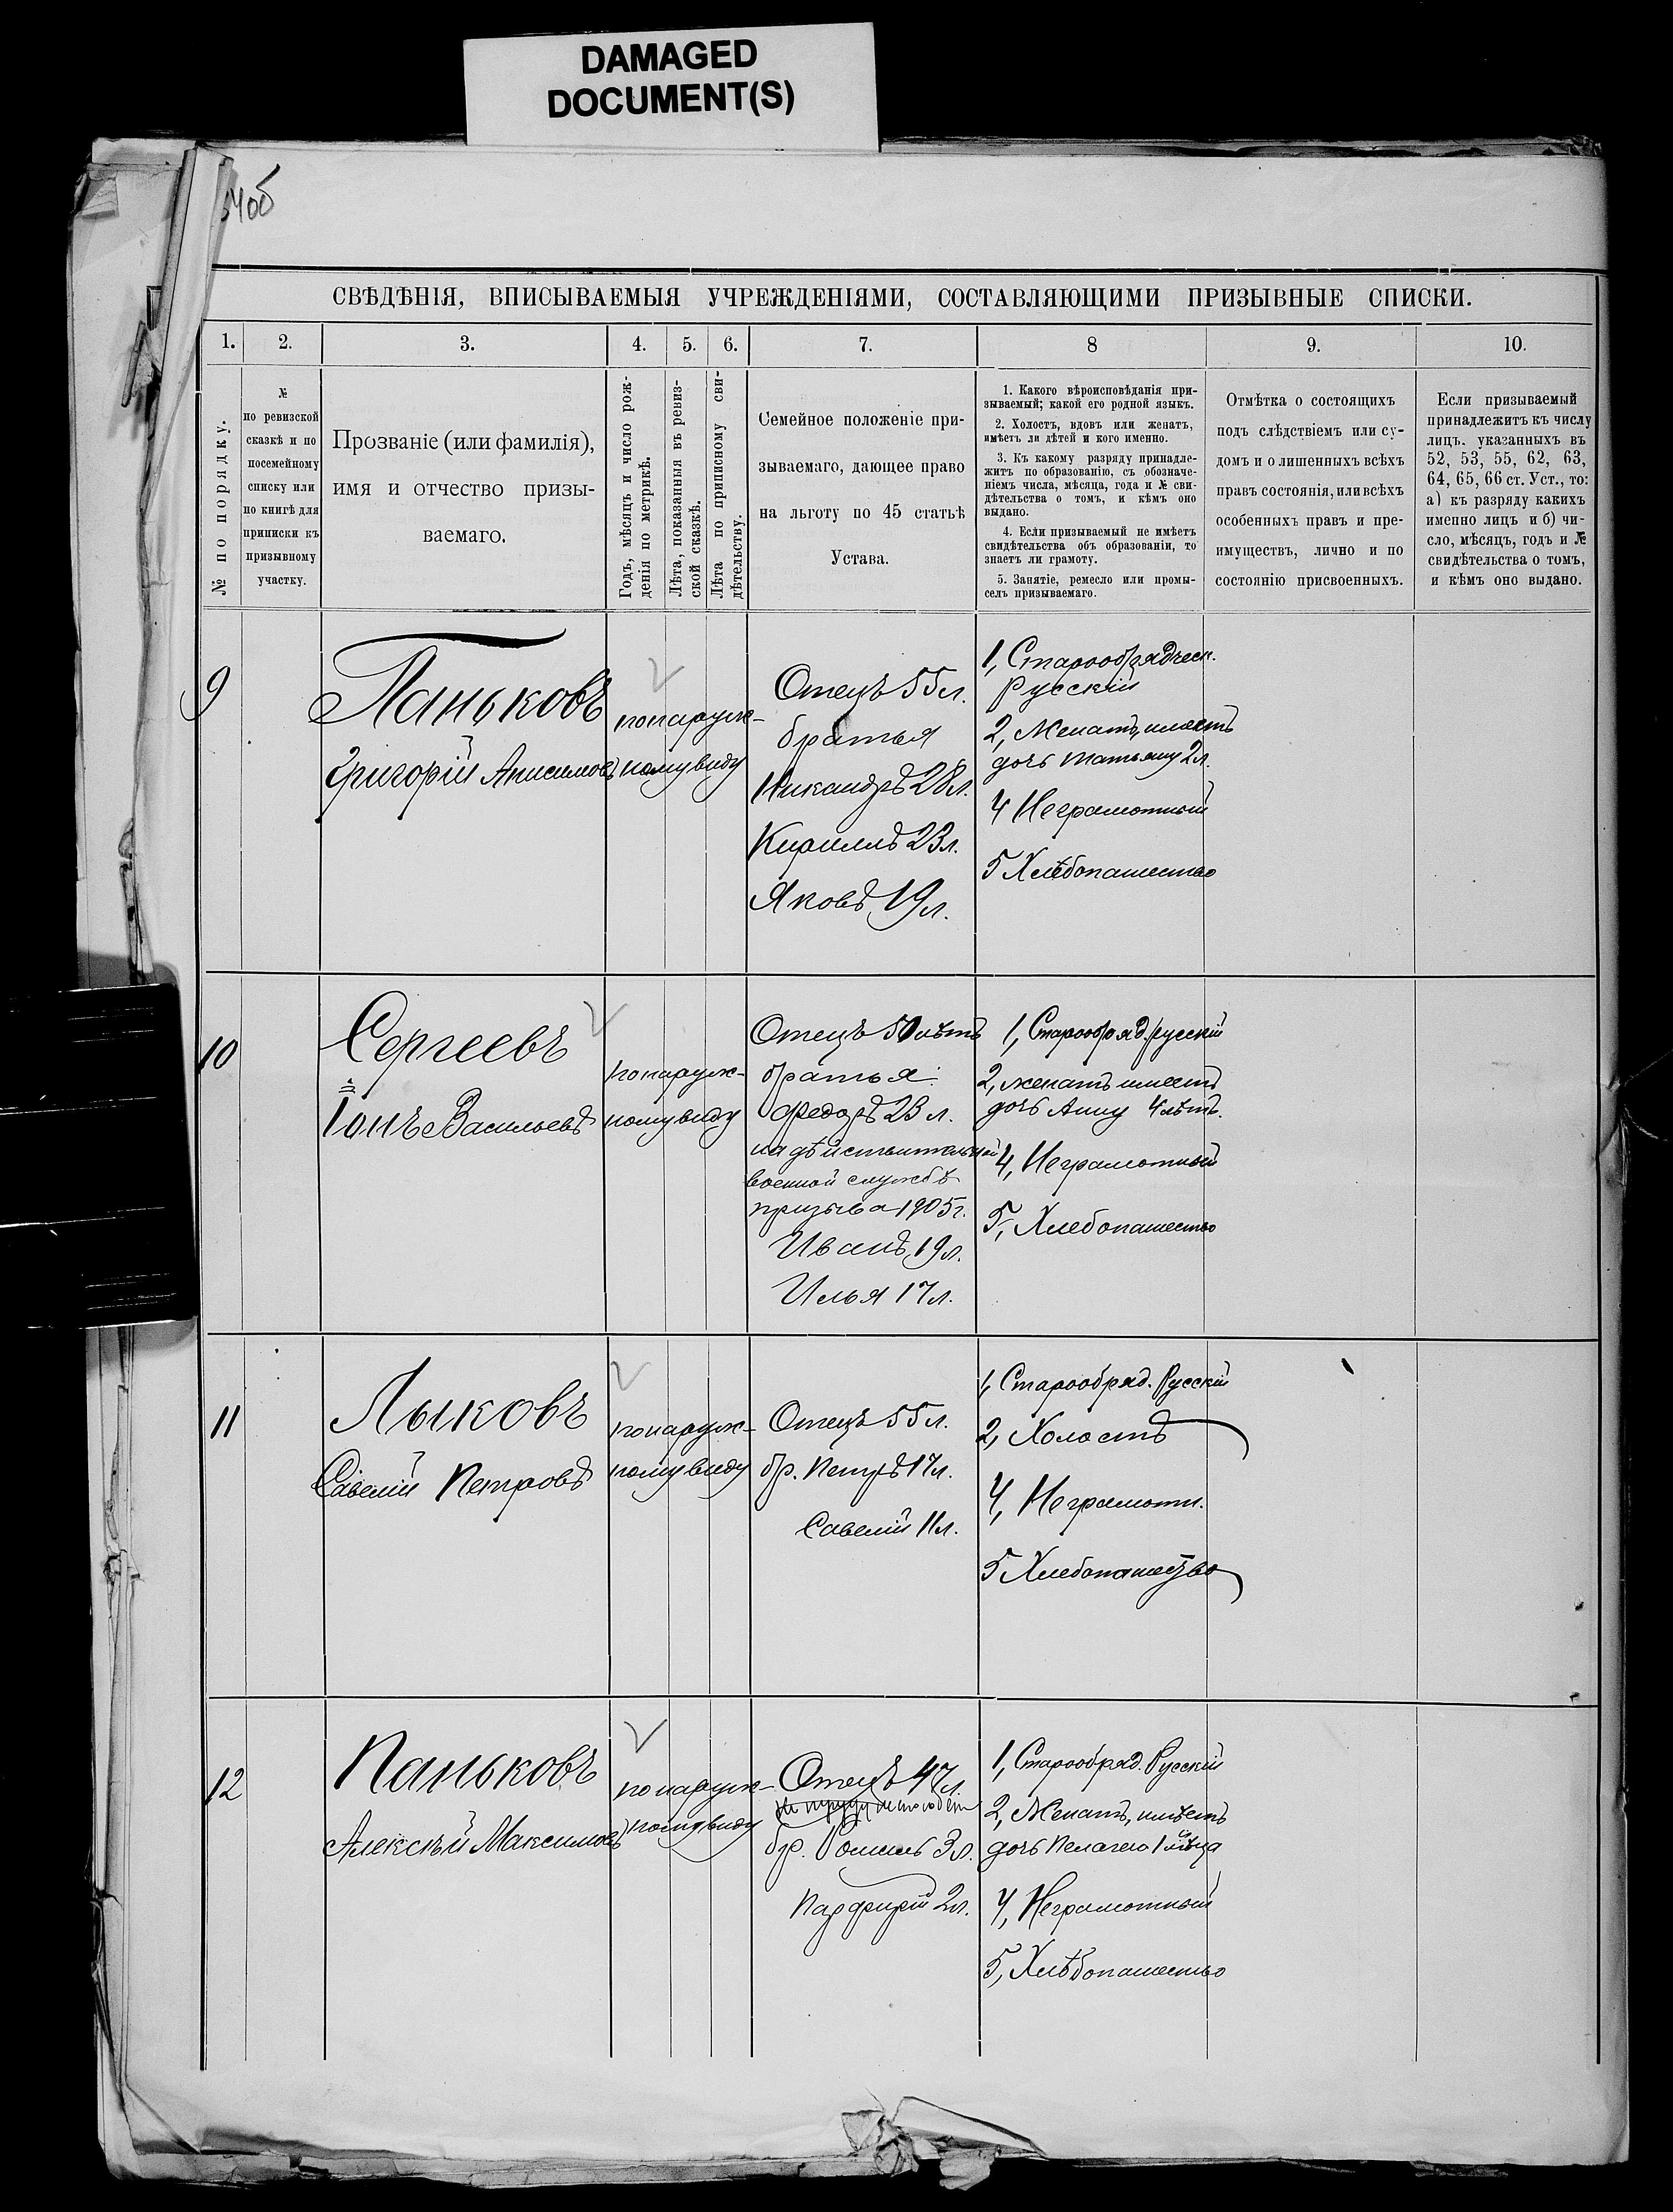 DAMAGED
DOCUMENT(S)
СВѢДѢНІЯ, ВПИСЫВАЕМЫЯ УЧРЕЖДЕНІЯМИ, СОСТАВЛЯЮЩИМИ ПРИЗЫВНЫЕ СПИСКИ.
1.
2.
3.
4.
5.
6.
7.
8
9.
10.
№ по порядку.
№
по ревизской
сказкѣ и по
посемейному
списку или
по книгѣ для
приписки къ
призывному
участку.
Прозваніе (или фамилія),
имя и отчество призы-
ваемаго.
Годъ, мѣсяцъ и число рож-
денія по метрикѣ.
Лѣта, показанныя въ ревиз-
ской сказкѣ.
Лѣта по приписному сви-
дѣтельству.
Семейное положеніе при-
зываемаго, дающее право
на льготу по 45 статьѣ
Устава.
1. Какого вѣроисповѣданія при-
зываемый; какой его родной языкъ.
2. Холостъ, вдовъ или женатъ,
имѣетъ ли дѣтей и кого именно.
3. Къ какому разряду принадле-
житъ по образованію, съ обозначе-
ніемъ числа, мѣсяца, года и № сви-
дѣтельства о томъ, и кѣмъ оно
выдано.
4. Если призываемый не имѣетъ
свидѣтельства объ образованіи, то
знаетъ ли грамоту.
5. Занятіе, ремесло или промы-
селъ призываемаго.
Отмѣтка о состоящихъ
подъ слѣдствіемъ или су-
домъ и о лишенныхъ всѣхъ
правъ состоянія, или всѣхъ
особенныхъ правъ и пре-
имуществъ, лично и по
состоянію присвоенныхъ.
Если призываемый
принадлежитъ къ числу
лицъ, указанныхъ въ
52, 53, 55, 62, 63,
64, 65, 66 ст. Уст., то:
а) къ разряду какихъ
именно лицъ и б) чи-
сло, мѣсяцъ, годъ и №
свидѣтельства о томъ,
и кѣмъ оно выдано.
9
Паньковъ
Григорій Анисимовъ
по наруж-
ному виду
Отецъ 55 л.
братья
Никандръ 28 л.
Кириллъ 23 л.
Яковъ 19 л.
1, Старообрядческ.
Русскій
2, Женатъ, имѣетъ
дочь Татьяну 2 л.
4 Неграмотный
5 Хлѣбопашество
10
Сергеевъ
Іонъ Васильевъ
по наруж-
ному виду
Отецъ 50 лѣтъ
братья:
Федоръ 23 л.
на дѣйствительной
военной службѣ
призыва 1905 г.
Иванъ 19 л.
Илья 17 л.
1, Старообряд. русскій
2, женатъ имеетъ
дочь Анну 4 лѣтъ.
4, Неграмотный
5, Хлебопашество
11
Лыковъ
Савелій Петровъ
по наруж-
ному виду
Отецъ 55 л.
бр. Петръ 17 л.
Савелій 11 л.
1, Старообряд. Русскій
2, Холостъ
4, Неграмотн.
5 Хлебопашество
12
Паньковъ
Алексѣй Максимовъ
по наруж-
ному виду
Отецъ 47 л.
бр. 3 л.
Парфирій 2 л.
1, Старообряд. Русскій
2, Женатъ, имѣетъ
дочь Пелагею 1 мѣсяца
4, Неграмотный
5, Хлѣбопашество